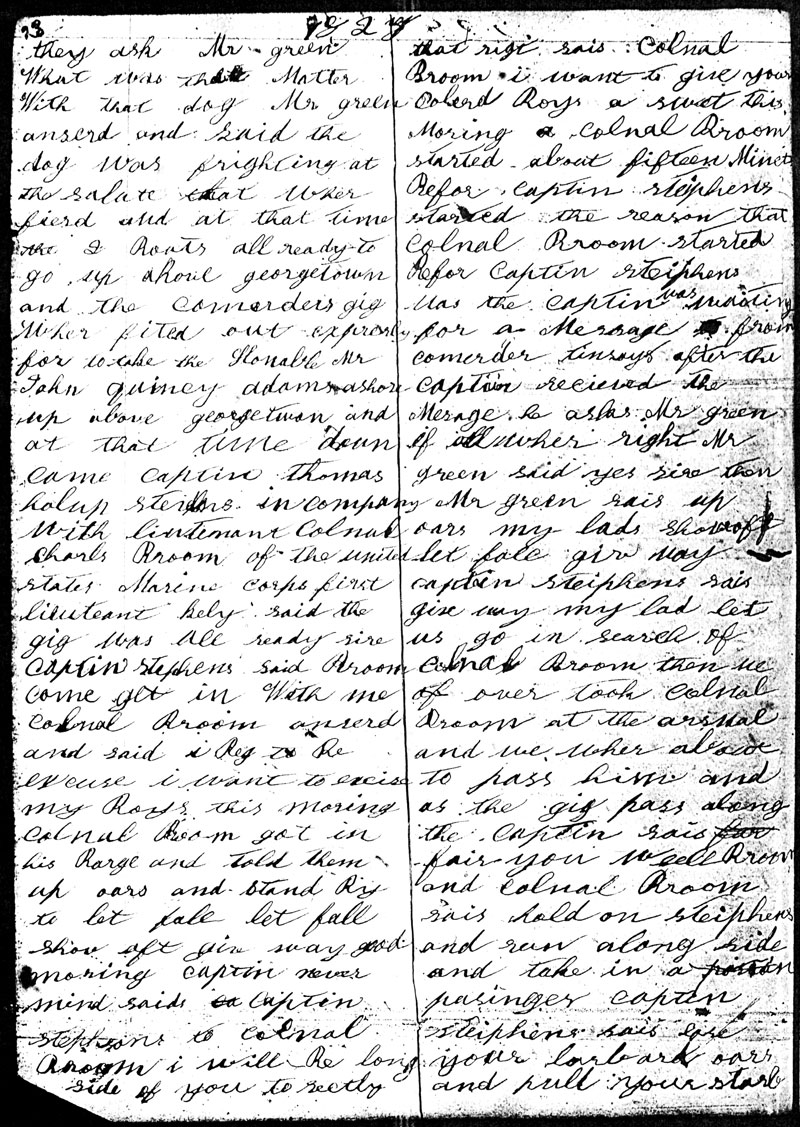 23
1827
they ask Mr green
What was that Matter
With that dog Mr green
anserd and said the
dog was frighting at
the salute that Wher
fierd and at that time
the 2 Boats all ready to
go up above georgetown
and the comerders gig
Wher fited out expresly
for to take the Honable Mr
John quincy adams ashore
up above georgetwon and
at that time down
came captin thomas
holup stephens in company
With lieutenant Colnal
Charls Broom of the united
states Marine Corps first
lieuteant kely said the
gig was all ready sire
captin stephens said Broom
come get in With me
colnal Broom anserd
and said i Beg to Be
excuse i want to excise
my Boys this moring
Colnal Broom got in
his Barge and told them
up oars and stand By
to let fall let fall
shov off give way good
moring captin never
mind said Captin
stephens to colnal
Broom i will Be long
side of you to rectly
that rigt sais Colnal
Broom i want to give your
Colerd Boys a swet this
Moring Colnal Broom
started about fifteen Minet
Befor captin stephens
started the reason that
Colnal Broom started
Befor Captin steiphens
Was the captin was waiting
for a Mesage from
comerder tinsays after the
captin recieved the
Mesage he asks Mr green
if all wher right Mr
green said yes sire then
Mr green sais up
oars my lads shov off
let fale giv way
captin steiphens sais
give way my lad let
us go in search of
Colnal Broom then we
of over took Colnal
Broom at the arsnal
and we wher about
to pass him and
as the gig pass along
the captin sais
fair you well Broom
and Colnal Broom
sais hold on steiphens
and run along side
and take in a
pasinger captin
steiphens sais ease
your larbard oars
and pull your starb